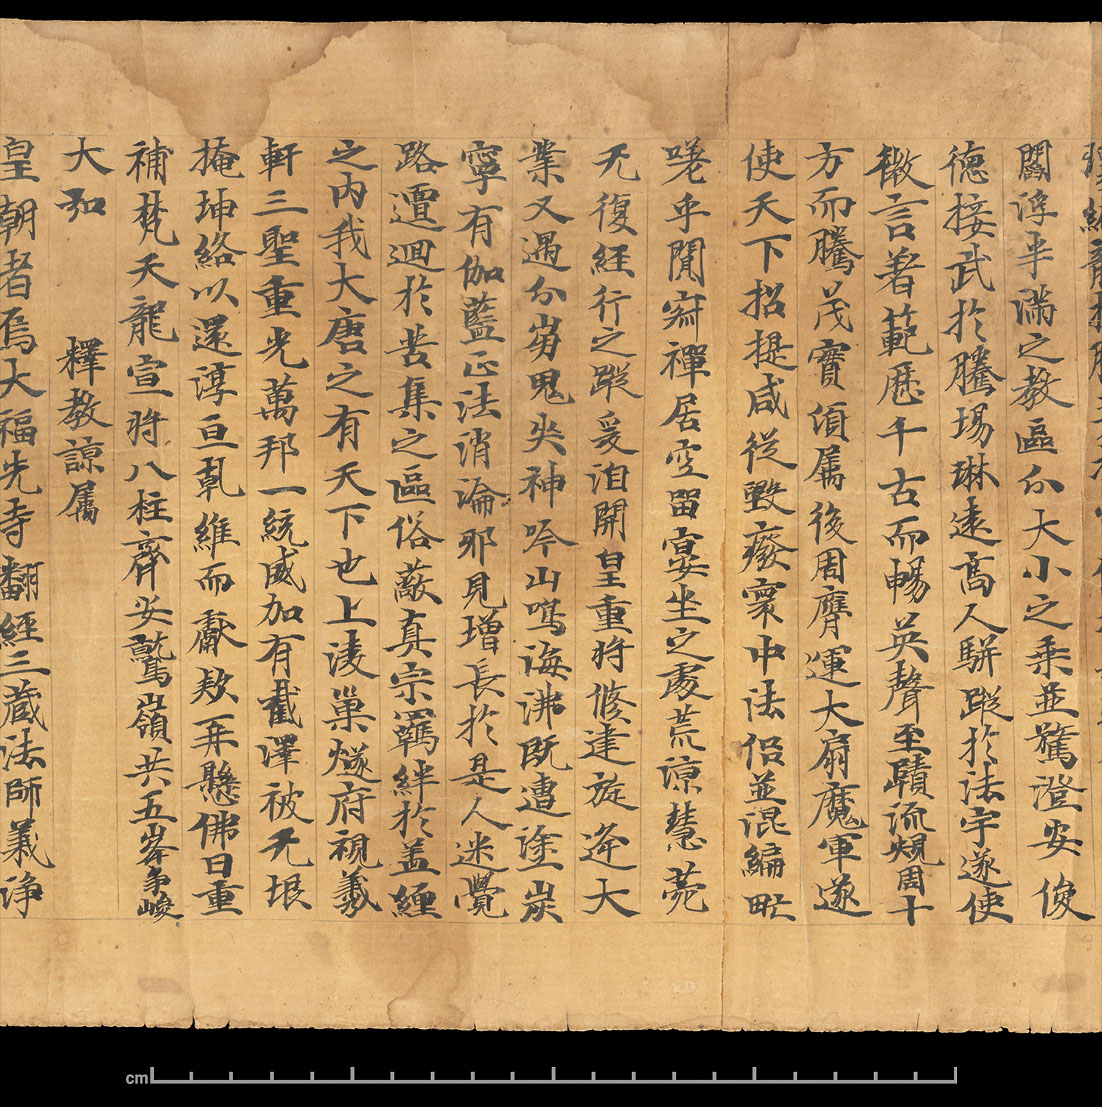 闡浮半滿之教區分大小之乘並鶩澄安俊
德接武於騰場琳遠高人騈蹤於法宇遂使
徽言著範歷千古而暢英聲至賾流規周十
方而騰茂實須属後周膺運大扇魔軍遂
使天下招提咸從毀廢寰中法侣並混編甿
嗟乎闃寂禪居空留宴坐之處荒凉慧菀
无復經行之蹤爰洎開皇重將修建旋逢大
業又遇分崩鬼哭神吟山鳴海沸既遭塗炭
寧有伽藍正法消淪邪見增長於是人迷覺
路邅迴於苦集之區俗蔽真宗羈絆於盖纏
之內我大唐之有天下也上凌巢燧府視羲
軒三聖重光萬邦一統威加有截澤被无垠
掩坤絡以還淳亘乹維而獻款再懸佛日重
補梵天龍宣將八柱齊安鷲嶺共五峯爭峻
大弘 釋教諒属
皇朝者焉大福先寺翻經三藏法師義淨